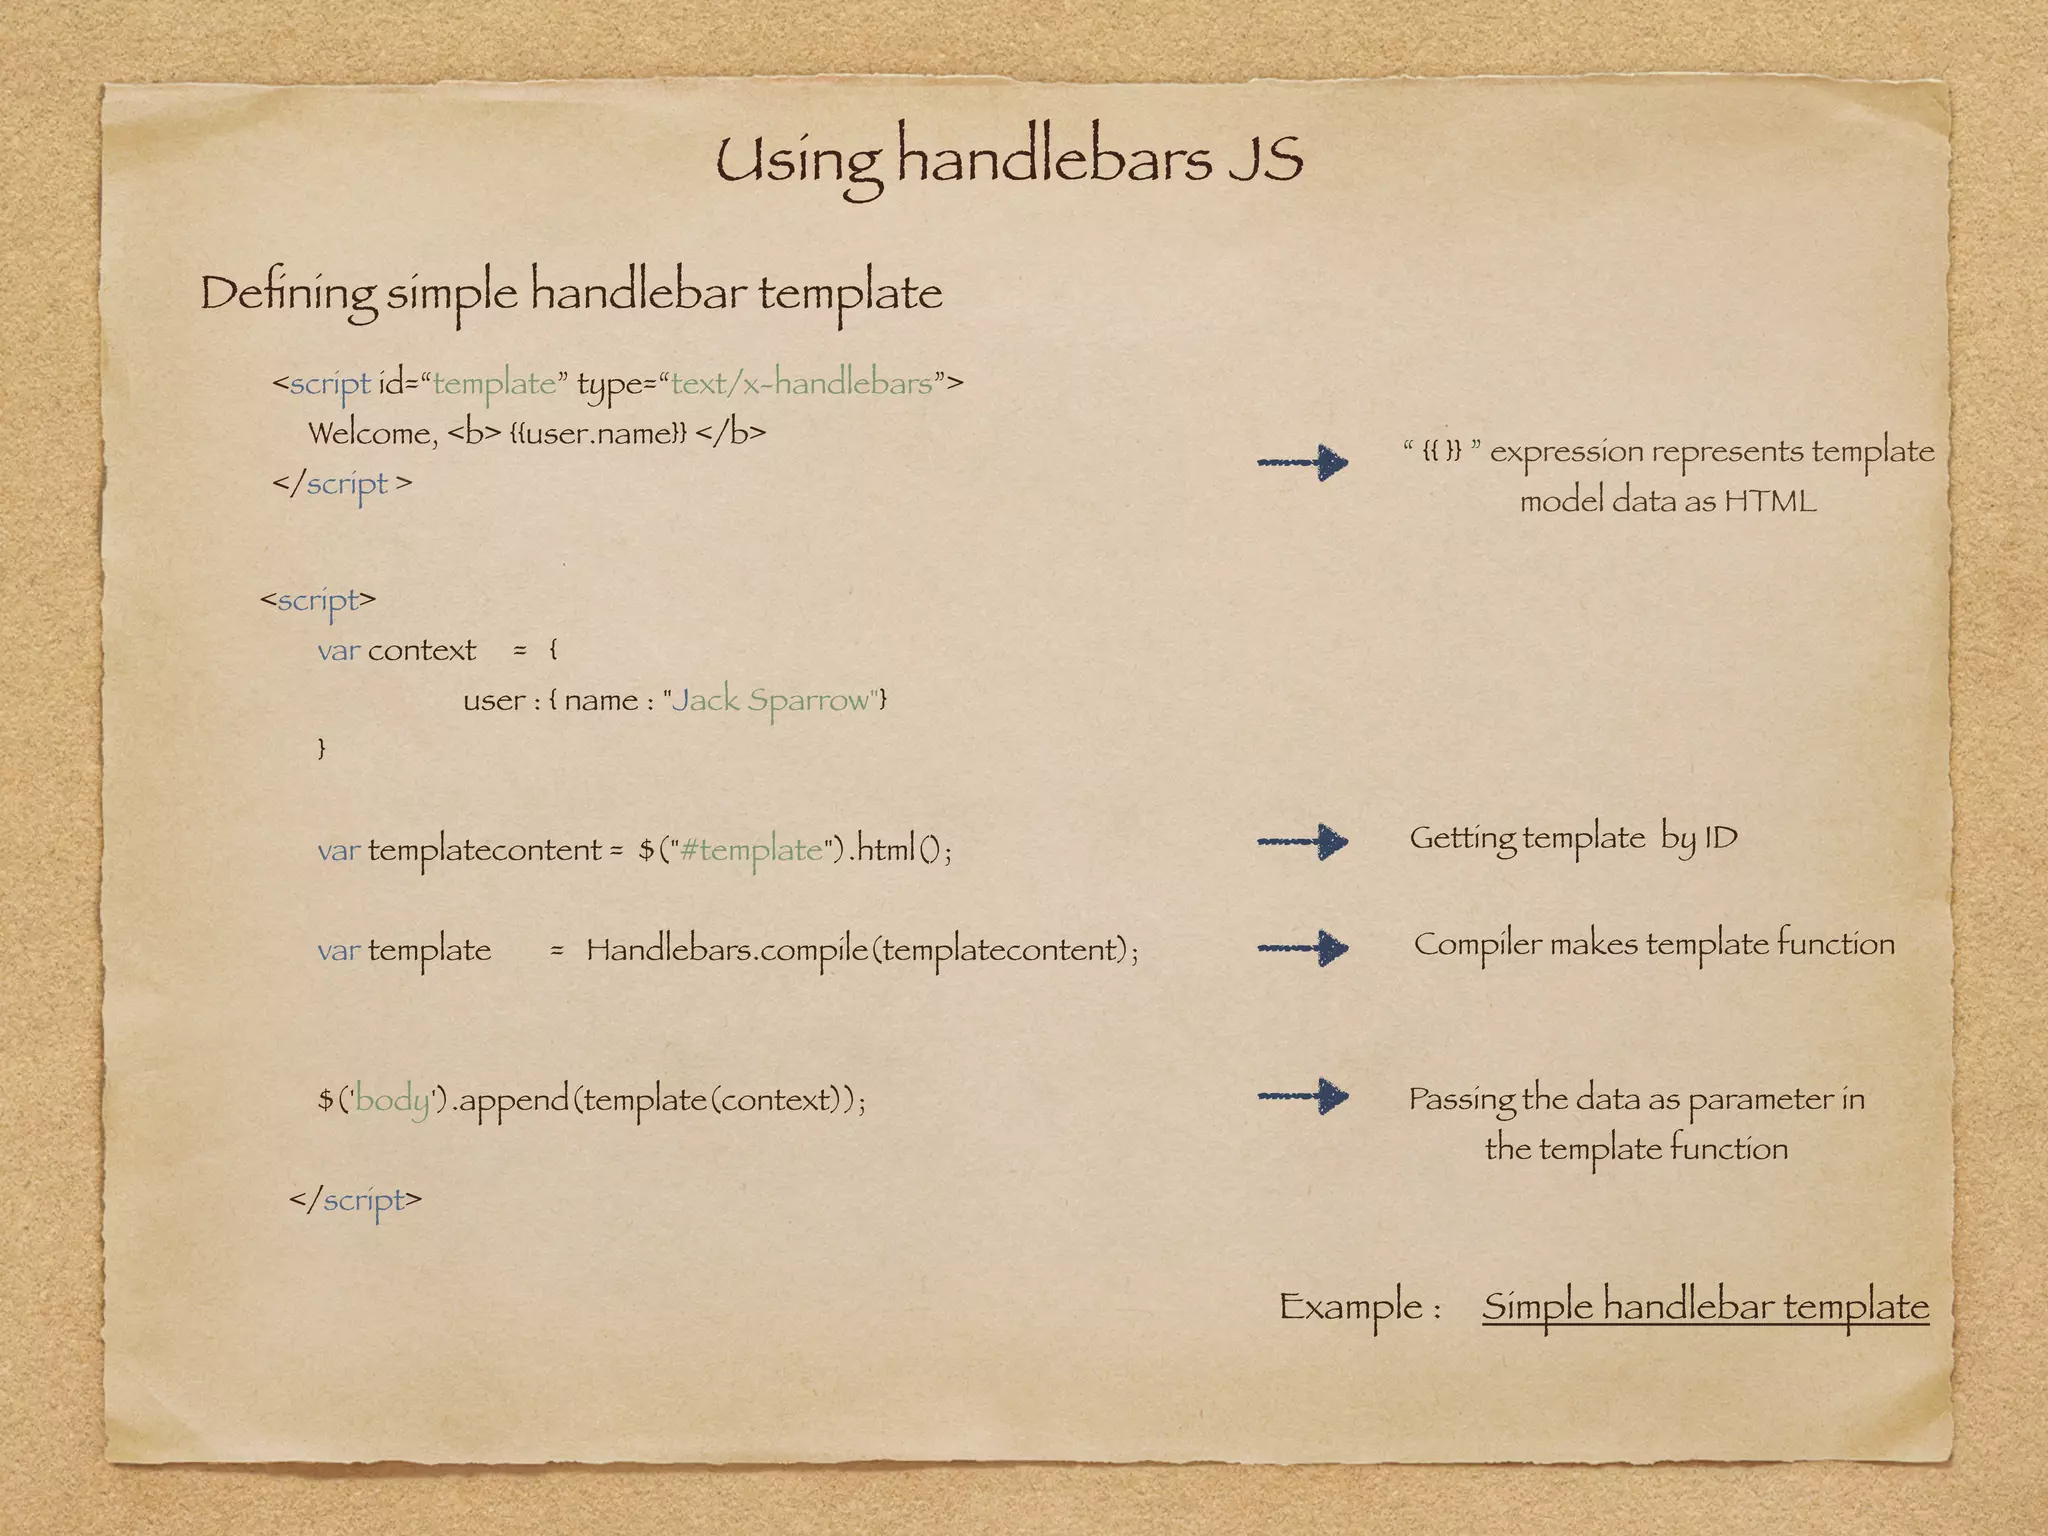 Using handlebars JS
Defining simple handlebar template
<script id=“template” type=“text/x-handlebars”>
Welcome, <b> {{user.name}} </b>
</script >
“ {{ }} ” expression represents template
model data as HTML
<script>
var context = {
user : { name : "Jack Sparrow"}
}
var templatecontent = $("#template").html();
Getting template by ID
var template = Handlebars.compile(templatecontent);
Compiler makes template function
$('body').append(template(context));
Passing the data as parameter in
the template function
</script>
Example : Simple handlebar template